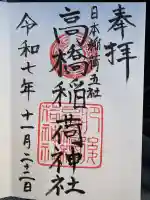 奉拝
日本稲荷五社
高橋稲荷神社
令和七年十一月二十二日